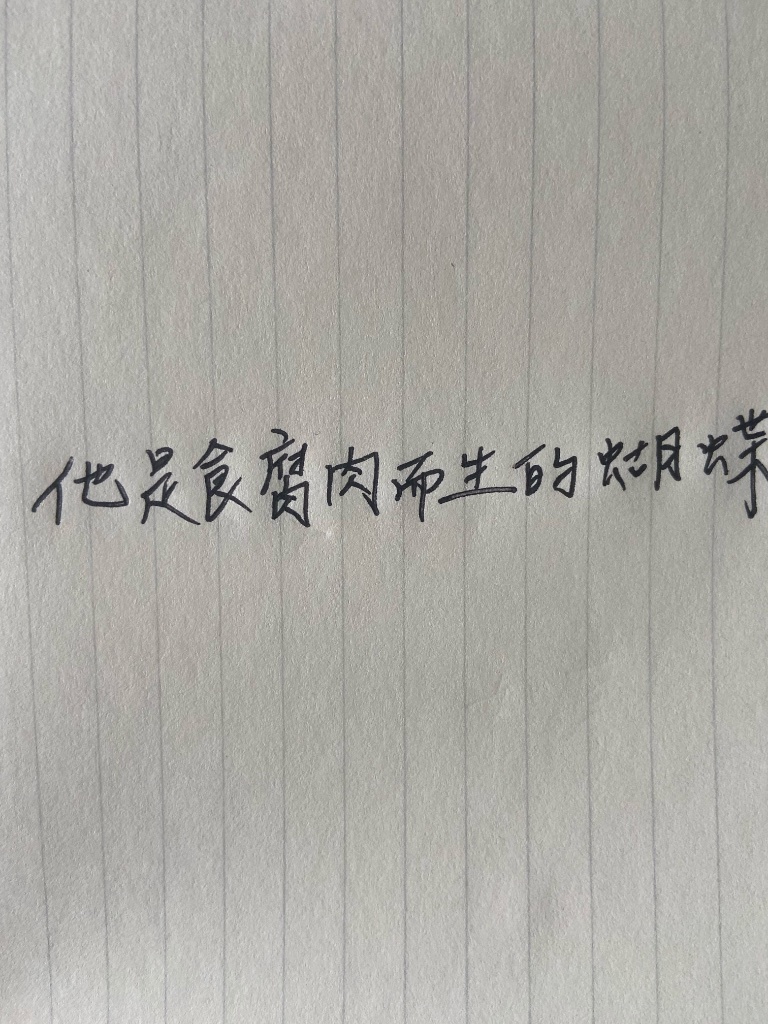 他是食腐肉而生的蝴蝶